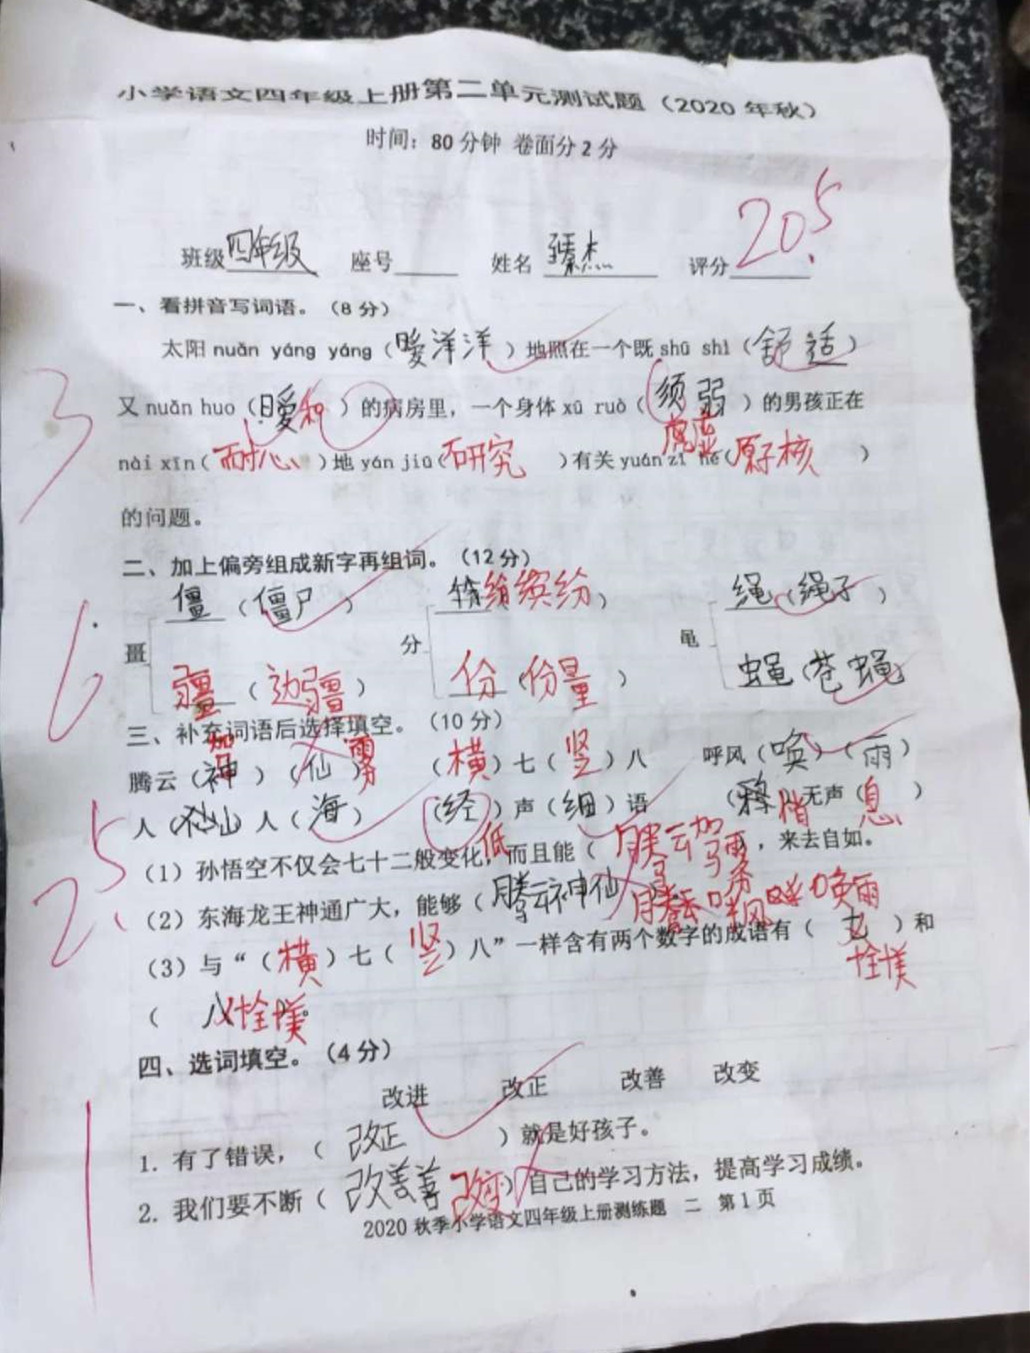 小学语文四年级上册第二单元测试题（2020年秋）
时间：80分钟 卷面分2分
班级四年级 座号 姓名 臻杰 评分20.5
一、看拼音写词语。（8分）
太阳 nuǎn yáng yáng（暖洋洋）地照在一个既 shū shì（舒适）
3
又 nuǎn huo（暖和）的病房里，一个身体 xū ruò（须弱）的男孩正在
虚
nài xīn（耐心）地 yán jiū（研究）有关 yuán zǐ hé（原子核）
的问题。
二、加上偏旁组成新字再组词。（12分）
僵（僵尸） 纷缤纷） 绳（绳子）
畺 分 黾
6
疆（边疆） 份（份量） 蝇（苍蝇）
三、补充词语后选择填空。（10分）
驾 雾
腾云（神）（仙） （横）七（竖）八 呼风（唤）（雨）
人（山）人（海） （轻）声（细）语 （悄）无声（息）
低
（1）孙悟空不仅会七十二般变化，而且能（腾云驾雾，来去自如。
2.5
（2）东海龙王神通广大，能够（腾云神仙 呼风唤雨
（3）与“（横）七（竖）八”一样含有两个数字的成语有（七）和
（八）。
四、选词填空。（4分）
改进 改正 改善 改变
1
1. 有了错误，（改正）就是好孩子。
2. 我们要不断（改善善 改变）自己的学习方法，提高学习成绩。
2020秋季小学语文四年级上册测练题 二 第1页